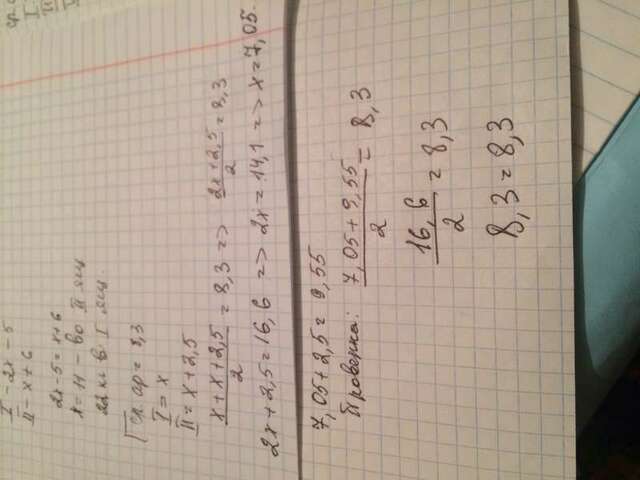 I - 2x - 5
II - x + 6
2x - 5 = x + 6
x = 11 - во II ящ
22 кг в I ящ.
Ср. ар = 8,3
I = x
II = x + 2,5
(x + x + 2,5)/2 = 8,3 => (2x + 2,5)/2 = 8,3
2x + 2,5 = 16,6 => 2x = 14,1 => x = 7,05.
7,05 + 2,5 = 9,55
Проверка: (7,05 + 9,55)/2 = 8,3
16,6/2 = 8,3
8,3 = 8,3